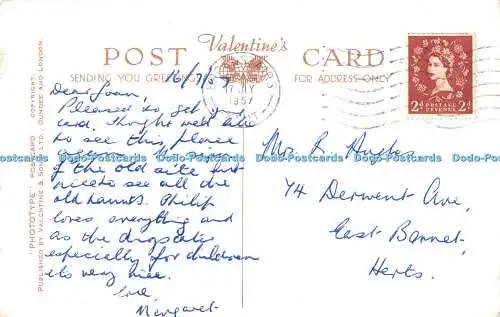 Valentine's
POST CARD
SENDING YOU GREETINGS
FOR ADDRESS ONLY
16/7/57
17 JY
1957
2d POSTAGE REVENUE 2d
"PHOTOTYPE" POSTCARD COPYRIGHT.
PUBLISHED BY VALENTINE & SONS, LTD. DUNDEE AND LONDON.
Dear Joan,
Pleased to get your
card. Thought we'd like
to see this place
again.
of the old site but
nice to see all the
old haunts. Philip
loves everything and
as the dropslots
especially for children
it's very nice.
Love,
Margaret
Mrs L. Hughes
74 Derwent Ave,
East Barnet,
Herts.
Dodo-Postcards Dodo-Postcards Dodo-Postcards Dodo-Postcards Dodo-Postcards Dodo-Postcards